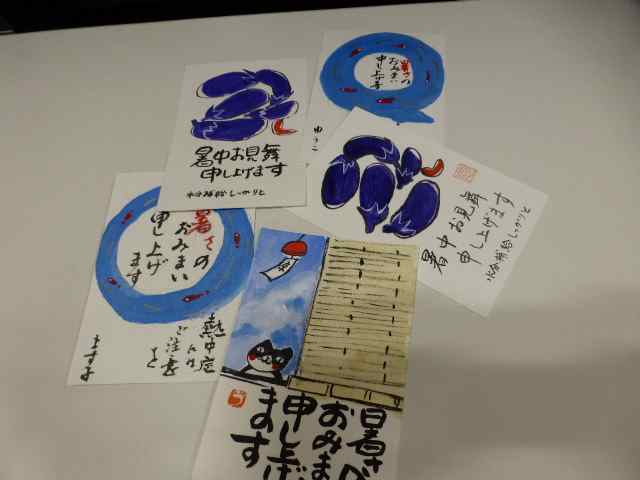 暑さの
おみまい
申し上げます
ゆうこ
暑中お見舞
申し上げます
水分補給しっかりと
暑中お見舞
申し上げます
水分補給しっかりと
暑さの
おみまい
申し上げ
ます
熱中症
にも
ご注意
を
ます子
暑さの
おみま
申し上げ
ます